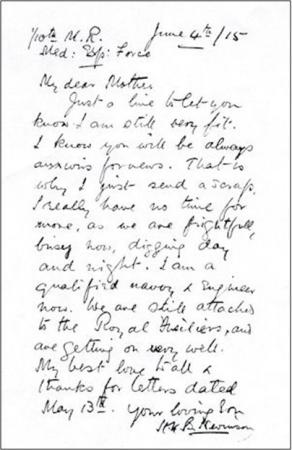 1/10th M.R. June 4th/15
Med: Exp: Force
My dear Mother
Just a line to let you
know I am still very fit.
I know you will be always
anxious for news. That is
why I just send a scrap.
I really have no time for
more, as we are frightfully
busy now, digging day
and night. I am a
qualified navvy & Engineer
now. We are still attached
to the Royal Fusiliers, and
are getting on very well.
My best love to all &
thanks for letters dated
May 13th. Your loving Son